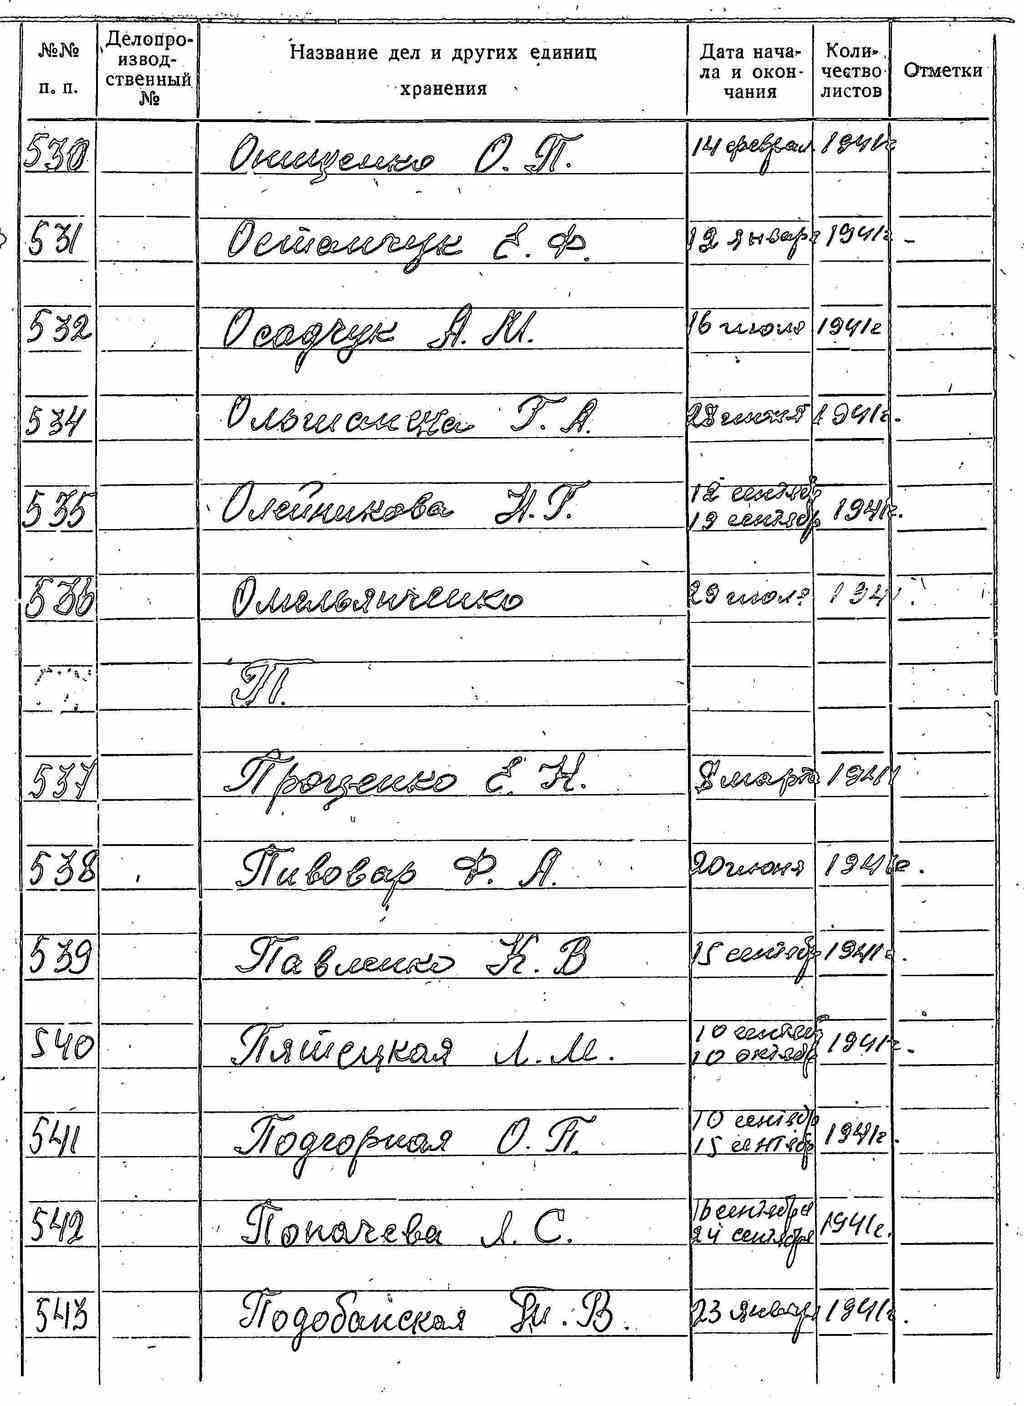 №№ п. п. Делопроизводственный № Название дел и других единиц хранения Дата начала и окончания Количество листов Отметки
530 Онищенко О. П. 14 феврал 1941г
531 Остапчук Е. Ф. 12 январ 1941г
532 Осадчук А. М. 16 июля 1941г
534 Г. А. 28 1941г.
535 Олейникова Н. Г. 12 сентяб 19 сентябр 1941г.
536 Омельянченко 29 июля 1941
П.
537 Проценко Е. Н. 8 марта 1941
538 Пивовар Ф. А. 20 июня 1941г.
539 Павленко К. В 15 сентябр 1941г.
540 Пятецкая Л. М. 10 сентяб 10 октябр 1941г.
541 Подгорная О. П. 10 сентябр 15 сентябр 1941г.
542 Л. С. 16 сентября 24 сентября 1941г.
543 Подобайская В. 23 январ 1941г.